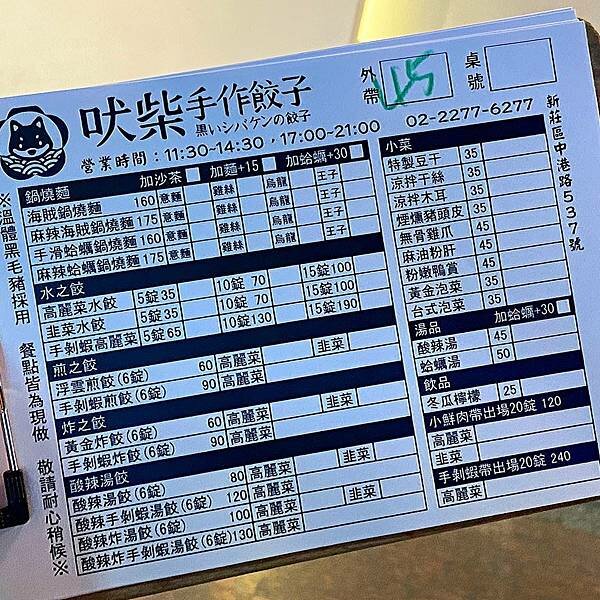 吠柴手作餃子
黒いシバケンの餃子
外帶
桌號
營業時間：11:30~14:30，17:00~21:00
02-2277-6277
新莊區中港路537號
※溫體黑毛豬採用 餐點皆為現做 敬請耐心稍候※
鍋燒麵 加沙茶 加麵+15 加蛤蠣+30
海賊鍋燒麵 160 意麵 雞絲 烏龍 王子
麻辣海賊鍋燒麵 175 意麵 雞絲 烏龍 王子
手滑蛤蠣鍋燒麵 160 意麵 雞絲 烏龍 王子
麻辣蛤蠣鍋燒麵 175 意麵 雞絲 烏龍 王子
水之餃
高麗菜水餃 5錠 35 10錠 70 15錠 100
韭菜水餃 5錠 35 10錠 70 15錠 100
手剝蝦高麗菜 5錠 65 10錠 130 15錠 190
煎之餃
浮雲煎餃(6錠) 60 高麗菜 韭菜
手剝蝦煎餃(6錠) 90 高麗菜
炸之餃
黃金炸餃(6錠) 60 高麗菜 韭菜
手剝蝦炸餃(6錠) 90 高麗菜
酸辣湯餃
酸辣湯餃(6錠) 80 高麗菜 韭菜
酸辣手剝蝦湯餃(6錠) 120 高麗菜
酸辣炸湯餃(6錠) 100 高麗菜 韭菜
酸辣炸手剝蝦湯餃(6錠) 130 高麗菜
小菜
特製豆干 35
涼拌干絲 35
涼拌木耳 35
煙燻豬頭皮 35
無骨雞爪 45
麻油粉肝 45
粉嫩鴨賞 45
黃金泡菜 35
台式泡菜 35
湯品 加蛤蠣+30
酸辣湯 45
蛤蠣湯 50
飲品
冬瓜檸檬 25
小鮮肉帶出場20錠 120
高麗菜
韭菜
手剝蝦帶出場20錠 240
高麗菜